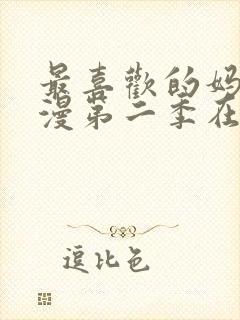 最喜歡的妈
漫第二季在
逗比色